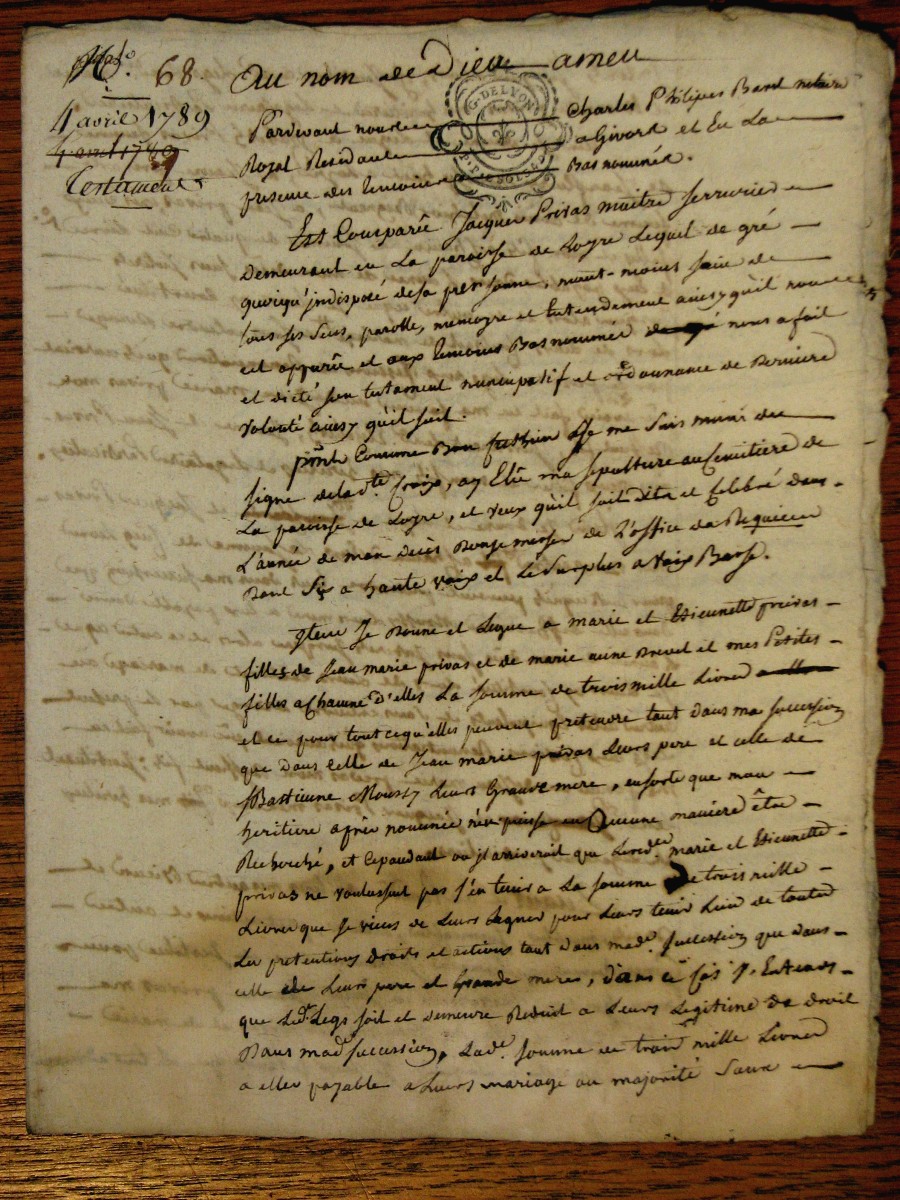 No. 68.
4 avril 1789
4 avril 1789
Testament
Au nom de Dieu amen
G. DE LYON
Pardevant nous Charles Philipes notaire
Royal Residant a Givors et En La
presence des temoins Bas nommés.
Est Comparû Jacques Privas maitre serrurier
Demeurant en La paroisse de Loyre Lequel de gré
quoiqu'indisposé de sa personne, neant-moins sain de
tous ses sens, parolle, memoyre et Entendement ainsy qu'il nous
est apparû et aux temoins Bas nommés nous a fait
et dicté son testament nuncupatif et ordonnance de Derniere
volonté ainsy qu'il suit.
Comme Bon Je me suis muni du
signe de la Ste Croix, ay Elû ma sepulture au Cemitiere de
La paroisse de Loyre, et veux qu'il soit dits et Celebré dans
L'année de mon Decès messes de L'office de Requiem
Dont Six a haute voix et Le Surplus a voix Basse.
Item Je Donne et Legue a marie et Etiennette privas
filles de Jean marie privas et de marie anne et mes Petites
filles a Chaune D'elles La somme de trois mille Livres
et ce pour tout ce qu'elles peuvent pretendre tant dans ma succession
que dans Celle de Jean marie privas Leurs pere et celle de
Bastienne Leurs Grande mere, ensorte que mon
heritiere aprés nommée n'en puisse en Aucune maniere être
Recherché, et Cependant ou j'l arriverait que Lesdes marie et Etiennette
privas ne voulussent pas s'en tenir a La somme De trois mille
Livres que je viens de Leurs Leguer pour Leurs tenir Lieu de toutes
Les pretentions Droits et actions tant dans made succession que dans
celle de Leurs pere et Grande meres, dans ce Cas J'Entends
que Led. Legs soit et Demeure Reduit a Leurs Legitime de droit
Dans made succession, Lade. somme de trois mille Livres
a elles payable a Leurs mariage ou majorité sans